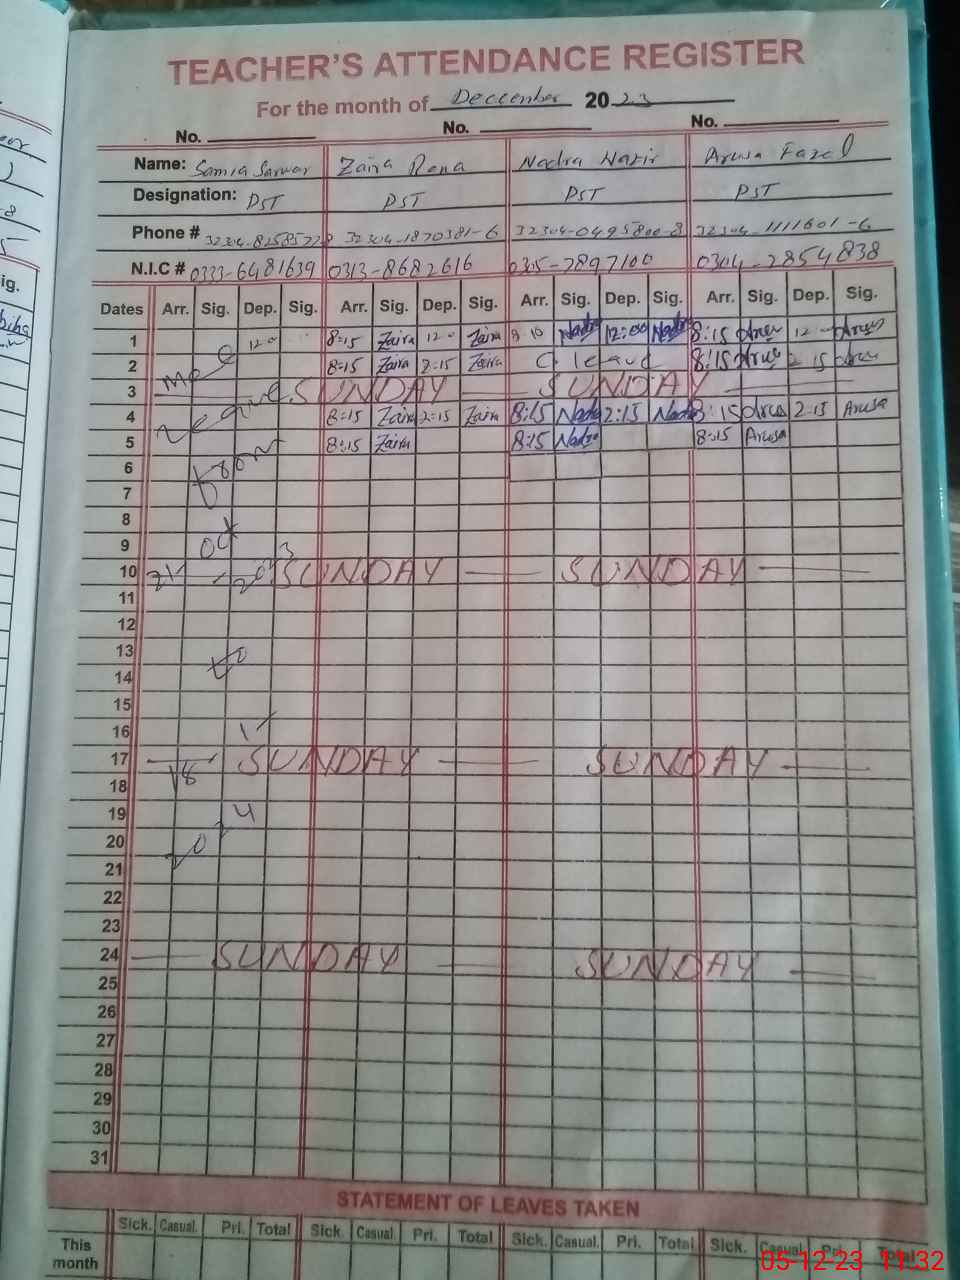 TEACHER'S ATTENDANCE REGISTER
For the month of December 2023
No. No. No.
Name: Samia Sarwar Zaira Rana Nadra Nazir Arusa Fazal
Designation: PST PST PST PST
Phone # 32304-8258577-8 32304-1870381-6 32304-0495800-8 32304-1111601-6
N.I.C # 0333-6481639 0313-8682616 0305-7897100 0304-2854838
Dates Arr. Sig. Dep. Sig. Arr. Sig. Dep. Sig. Arr. Sig. Dep. Sig. Arr. Sig. Dep. Sig.
1 12-0 8:15 Zaira 12-0 Zaira 8 10 Nadra 12:00 Nadra 8:15 Arusa 12 Arusa
2 8:15 Zaira 2:15 Zaira C. leave 8:15 Arusa 2 15 Arusa
3 SUNDAY SUNDAY
4 leave 8:15 Zaira 2:15 Zaira 8:15 Nadra 2:15 Nadra 8:15 Arusa 2:15 Arusa
5 8:15 Zaira 8:15 Nadra 8:15 Arusa
6 from
7
8
9 Oct
10 21- 2023 SUNDAY SUNDAY
11
12
13 to
14
15
16
17 SUNDAY SUNDAY
18 18
19 2024
20
21
22
23
24 SUNDAY SUNDAY
25
26
27
28
29
30
31
STATEMENT OF LEAVES TAKEN
Sick. Casual. Pri. Total Sick. Casual. Pri. Total Sick. Casual. Pri. Total Sick. Casual. Pri. Total
This month
05-12-23 11:32